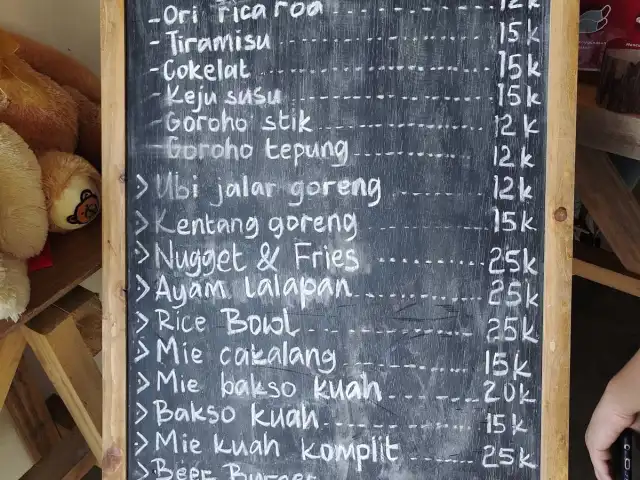 - Ori rica roa ........ 12k
- Tiramisu ........ 15k
- Cokelat ........ 15k
- Keju susu ........ 15k
- Goroho stik ........ 12k
- Goroho tepung ........ 12k
> Ubi jalar goreng ........ 12k
> Kentang goreng ........ 15k
> Nugget & Fries ........ 25k
> Ayam lalapan ........ 25k
> Rice Bowl ........ 25k
> Mie cakalang ........ 15k
> Mie bakso kuah ........ 20k
> Bakso kuah ........ 15k
> Mie kuah komplit ........ 25k
> Beef Burger